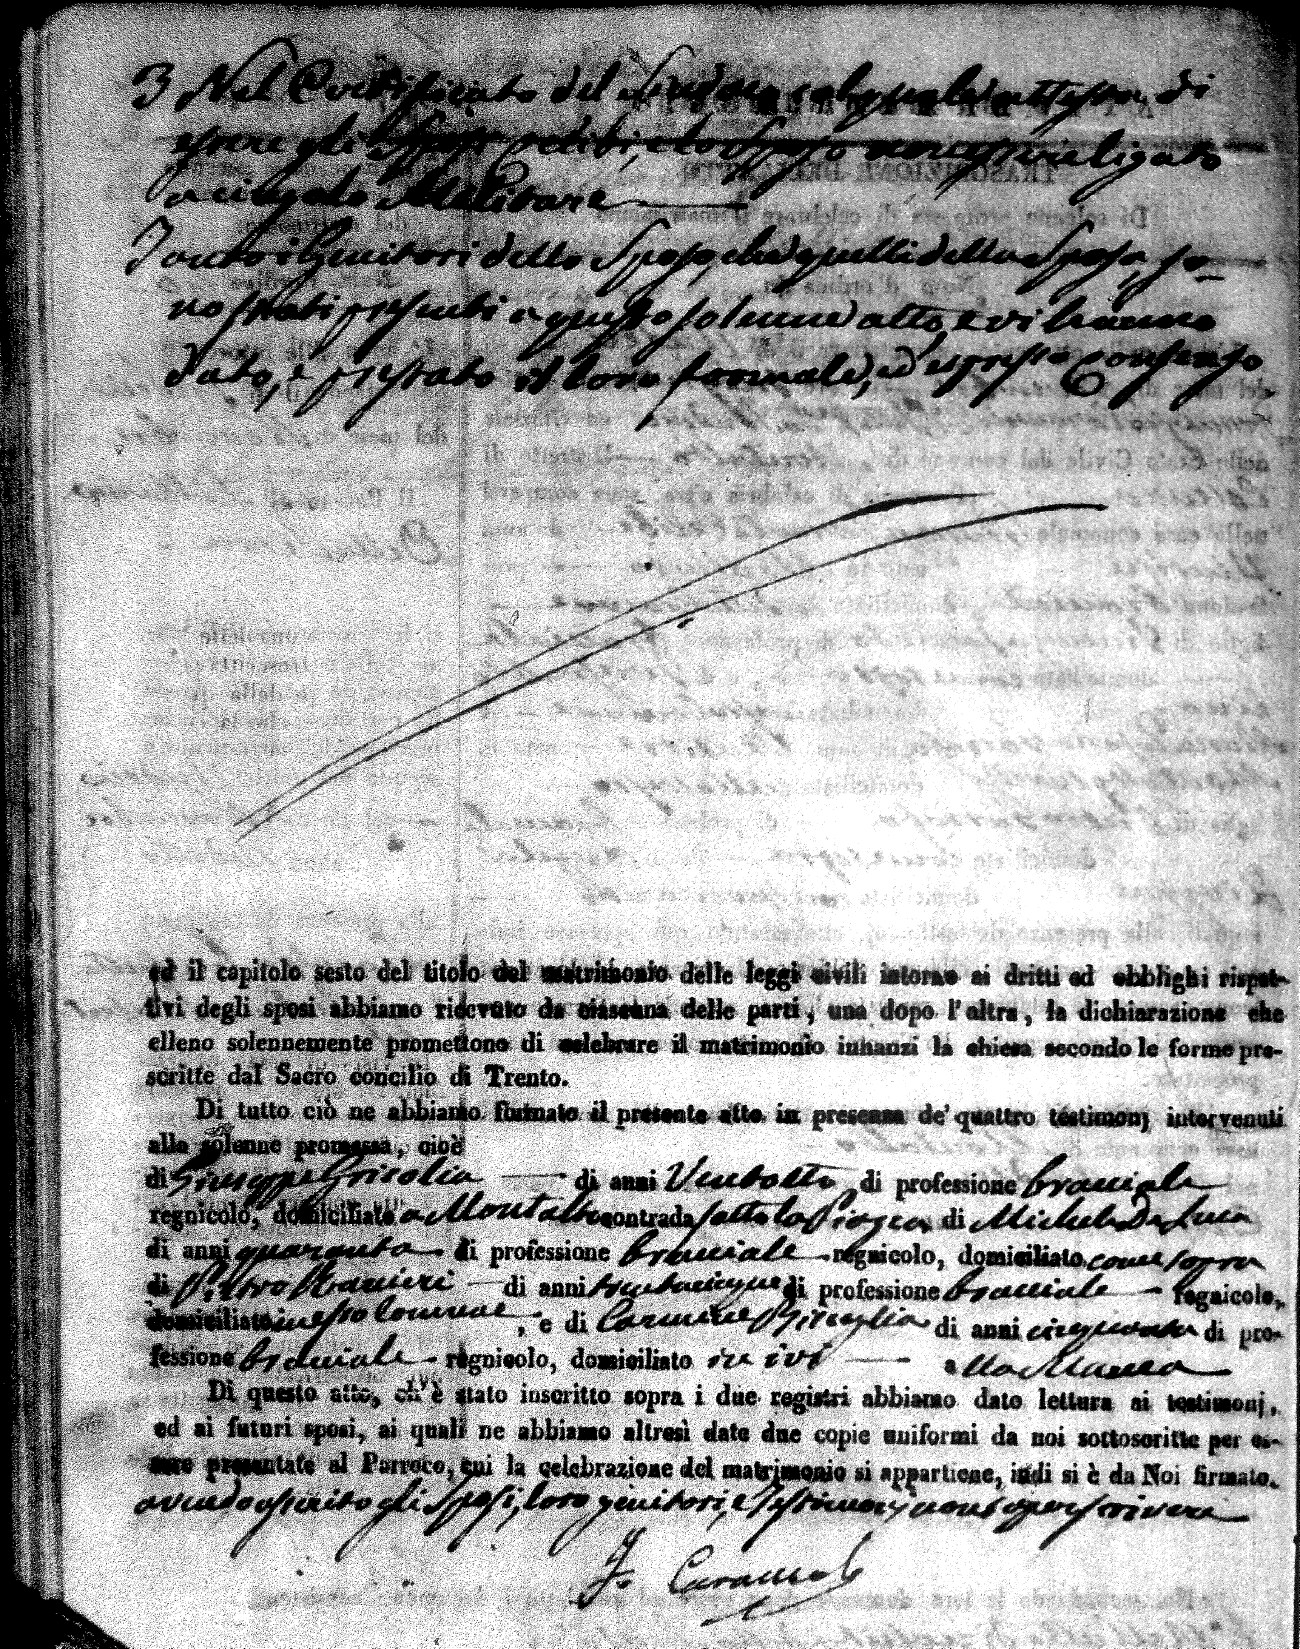 3 Nel Certificato del Sindaco col quale attesta, di
essere gli Sposi celibi, e lo Sposo non essere ligato
a cingolo Militare
Tanto i Genitori dello Sposo, che quelli della Sposa, so-
no stati presenti a questo solenne atto, e vi hanno
dato, e prestato il loro formale, ed espresso Consenso
ed il capitolo sesto del titolo del matrimonio delle leggi civili intorno ai dritti ed obblighi rispet-
tivi degli sposi abbiamo ricevuto da ciascuna delle parti, una dopo l'altra, la dichiarazione che
elleno solennemente promettono di celebrare il matrimonio innanzi la chiesa secondo le forme pre-
scritte dal Sacro concilio di Trento.
Di tutto ciò ne abbiamo formato il presente atto in presenza de' quattro testimonj intervenuti
alla solenne promessa, cioè
di Giuseppe Grisolia di anni Ventotto, di professione bracciale
regnicolo, domiciliato a Montalto contrada sotto la Piazza di Michele De Luca
di anni quaranta di professione bracciale regnicolo, domiciliato come sopra
di Pietro Ranieri di anni trentacinque di professione bracciale regnicolo,
domiciliato in esso Comune, e di Carmine di anni cinquanta di pro-
fessione bracciale regnicolo, domiciliato ivi
Di questo atto, ch'è stato inscritto sopra i due registri abbiamo dato lettura ai testimonj,
ed ai futuri sposi, ai quali ne abbiamo altresì date due copie uniformi da noi sottoscritte per es-
sere presentate al Parroco, cui la celebrazione del matrimonio si appartiene, indi si è da Noi firmato.
avendo asserito gli Sposi, loro genitori, e Testimonj non saper scrivere